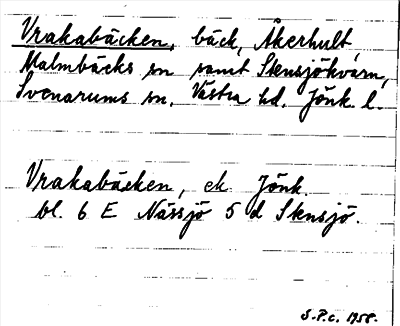 Vrakabäcken, bäck, Åkerhult
Malmbäcks sn samt Stensjökvarn,
Svenarums sn. Västra hd. Jönk. l.
Vrakabäcken, ek Jönk.
bl. 6 E Nässjö 5 d Stensjö.
S.P.c. 1958.